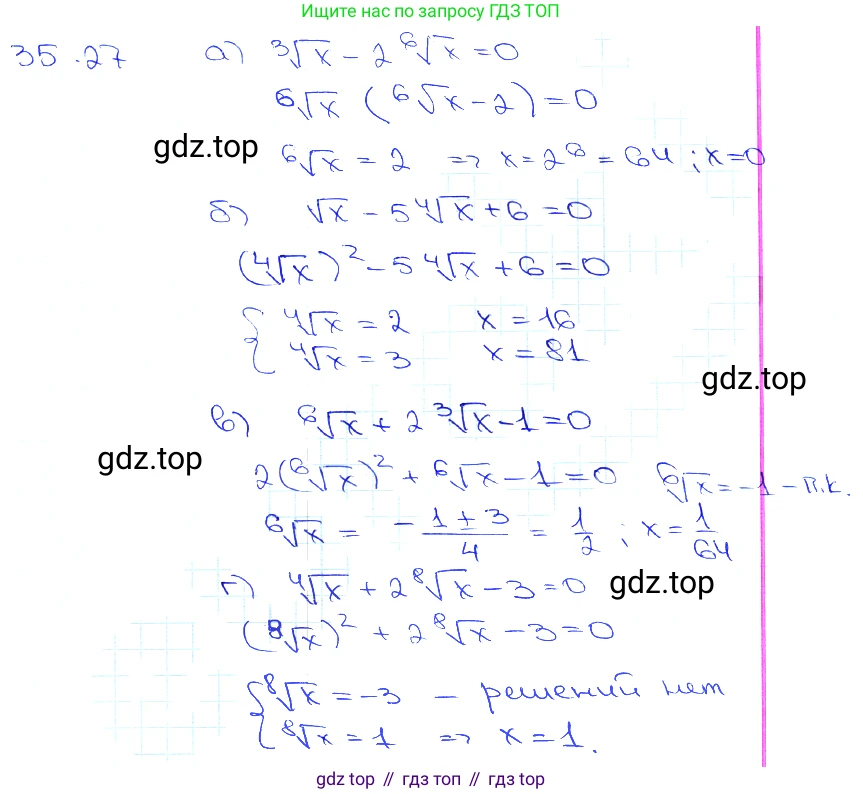 Ищите нас по запросу ГДЗ ТОП
35.27 а) ∛x - 2 ⁶√x = 0
⁶√x (⁶√x - 2) = 0
gdz.top
⁶√x = 2 => x = 2⁶ = 64 ; x = 0
б) √x - 5 ⁴√x + 6 = 0
(⁴√x)² - 5 ⁴√x + 6 = 0
{ ⁴√x = 2 x = 16
⁴√x = 3 x = 81
gdz.top
в) ⁶√x + 2 ∛x - 1 = 0
gdz.top
2(⁶√x)² + ⁶√x - 1 = 0 ⁶√x = -1 - п.к.
⁶√x = -1±3/4 = 1/2 ; x = 1/64
г) ⁴√x + 2 ⁸√x - 3 = 0 gdz.top
(⁸√x)² + 2 ⁸√x - 3 = 0
{ ⁸√x = -3 - решений нет
⁸√x = 1 => x = 1.
gdz top // гдз топ // gdz top